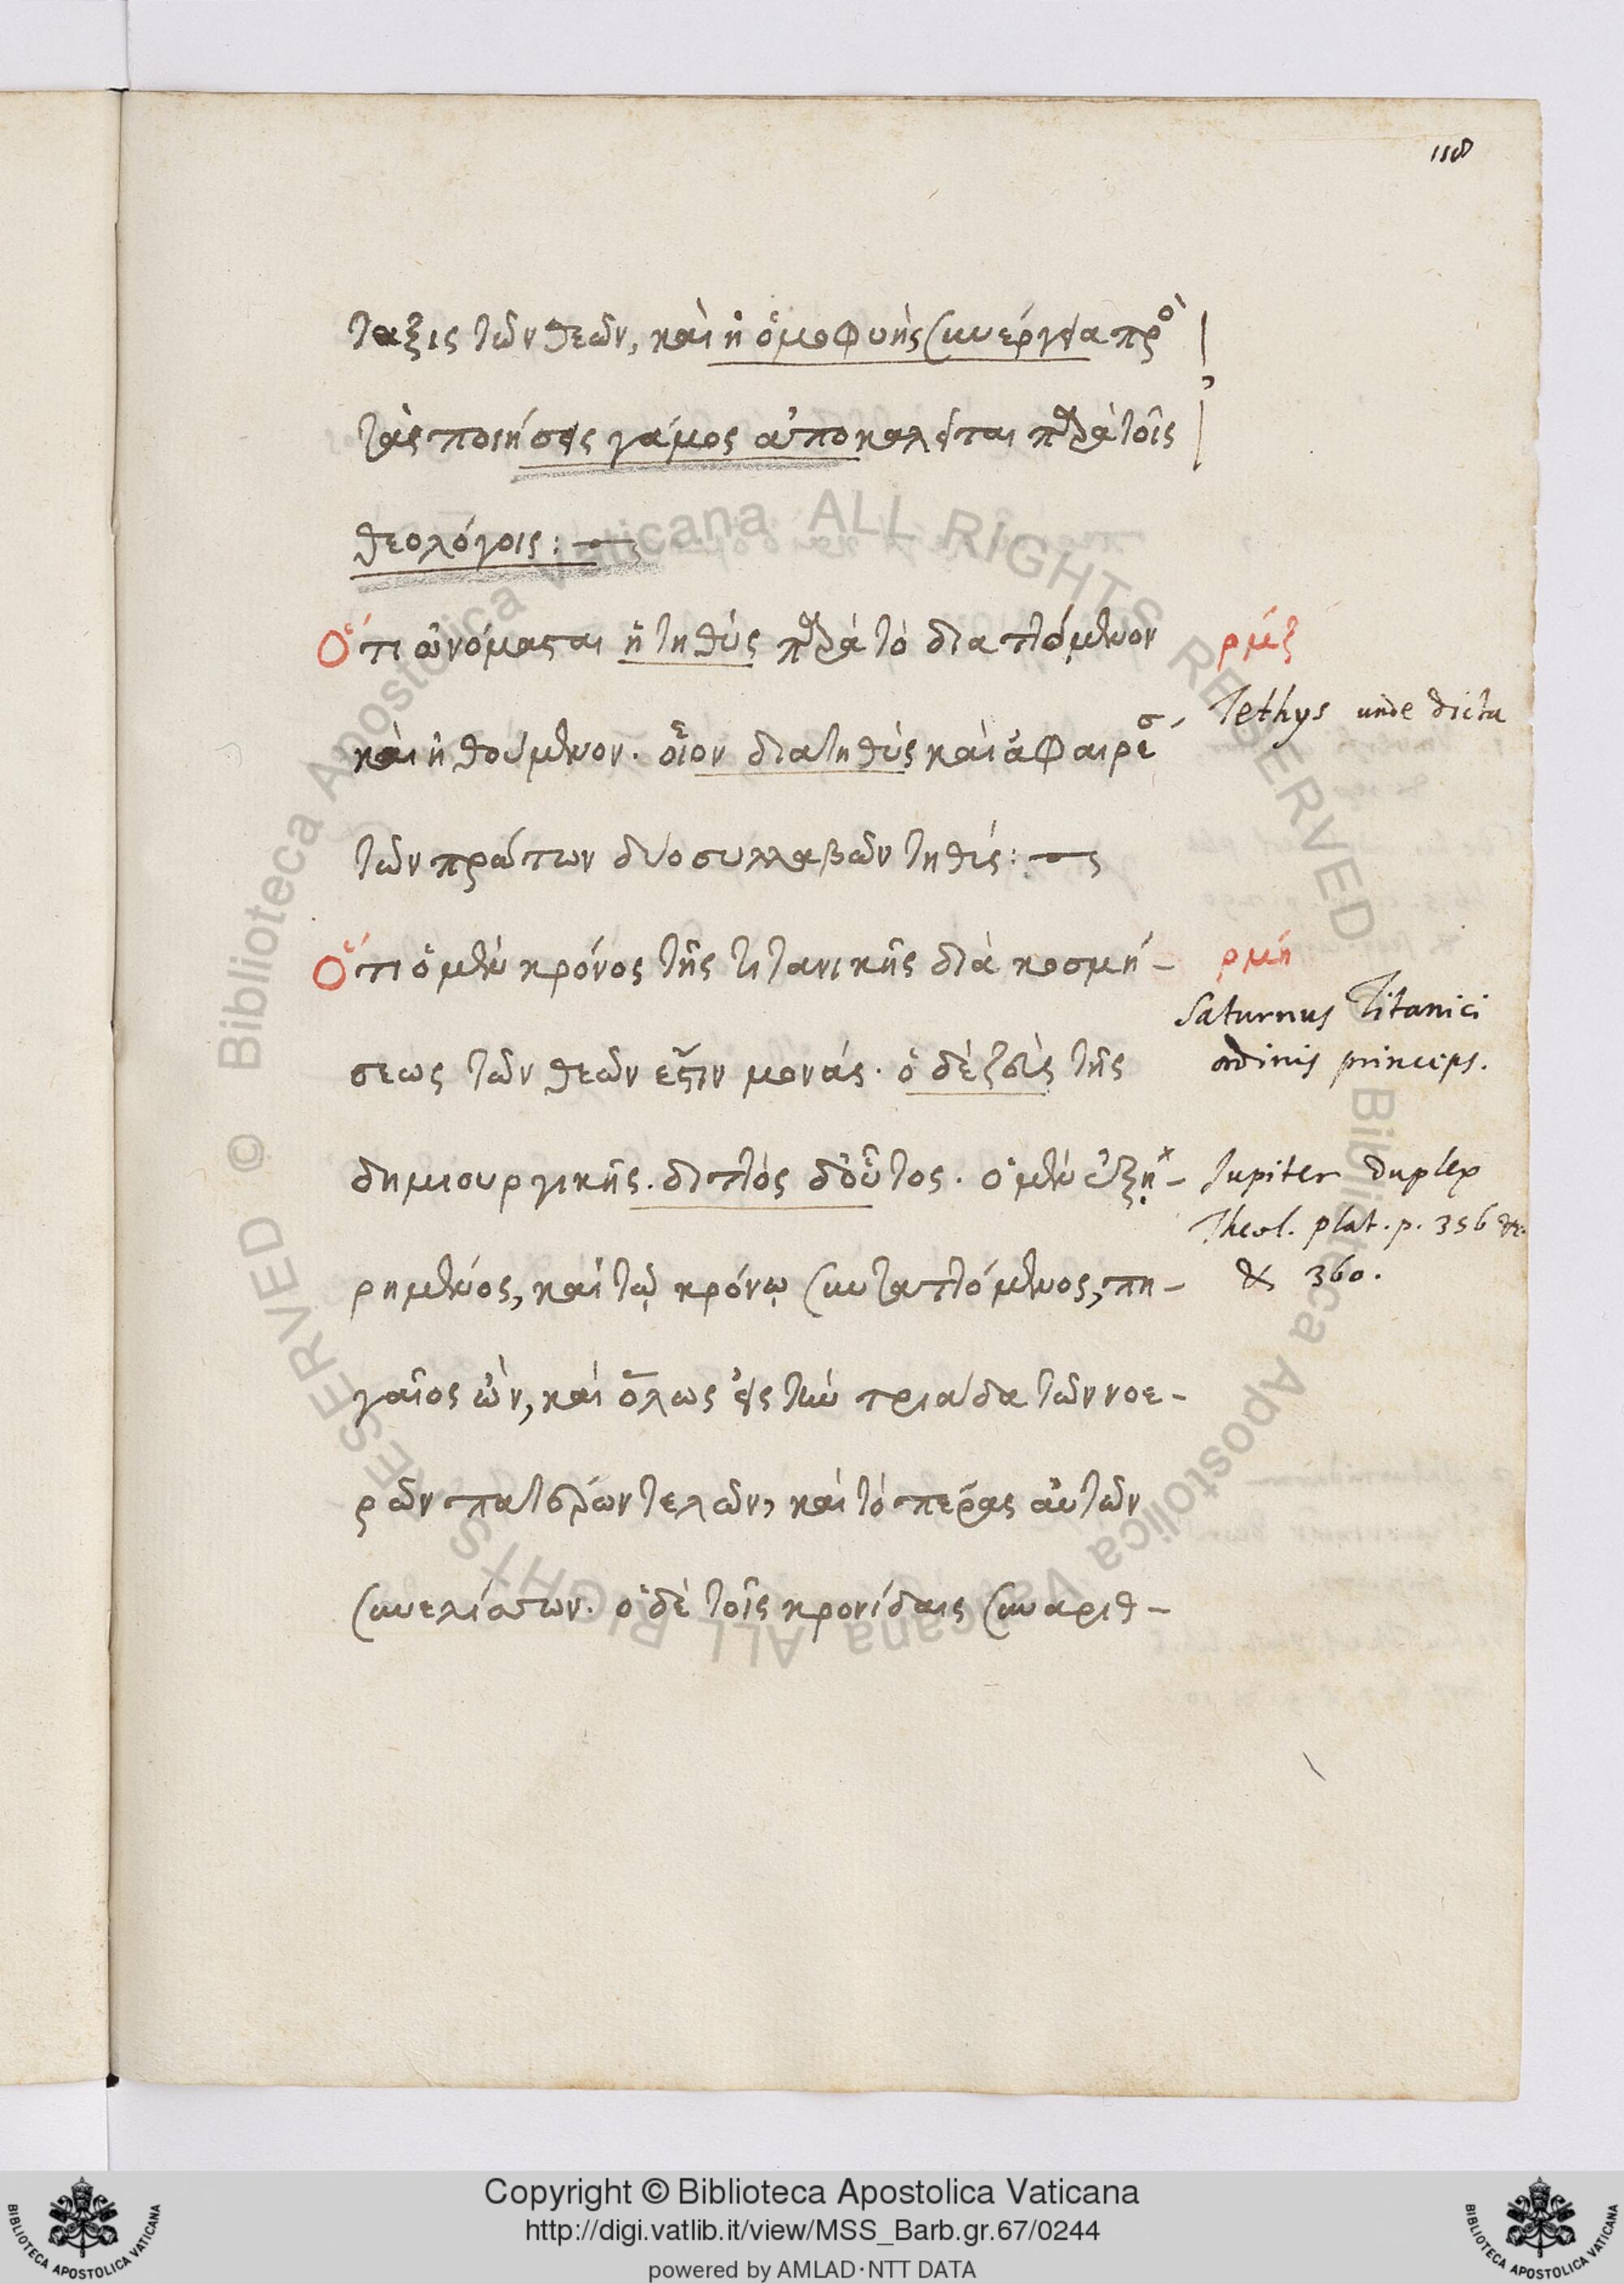 118
ταξις τῶν θεῶν, καὶ ἡ ὁμοφυὴς συνέργεια πρὸ
τὰς ποιήσεις γάμος ἀποκαλεῖται παρὰ τοῖς
θεολόγοις:
Ὅτι ὠνόμασται ἡ τηθὺς παρὰ τὸ διαττόμενον
ρμζ
Tethys unde dicta
καὶ ἠθούμενον. οἷον διατηθὺς καὶ ἀφαιρέσ
τῶν πρώτων δύο συλλαβῶν τηθύς:
Ὅτι ὁ μὲν κρόνος τῆς τιτανικῆς διὰ κοσμή-
ρμή
Saturnus Titanici
ordinis princeps.
σεως τῶν θεῶν ἐστὶν μονάς. ὁ δὲ ζεὺς τῆς
δημιουργικῆς. διττὸς δ' οὗτος. ὁ μὲν ἐξῃ-
Iupiter duplex
Theol. plat. p. 356 &c.
& 360.
ρημένος, καὶ τῷ κρόνῳ συνταττόμενος, πη-
γαῖος ὢν, καὶ ὅλως εἰς τὴν τριάδα τῶν νοε-
ρῶν πατέρων τελῶν, καὶ τὸ πέρας αὐτῶν
συνελίσσων. ὁ δὲ τοῖς κρονίδαις συναριθ-
© Biblioteca Apostolica Vaticana ALL RIGHTS RESERVED
© Biblioteca Apostolica Vaticana ALL RIGHTS RESERVED
Copyright © Biblioteca Apostolica Vaticana
http://digi.vatlib.it/view/MSS_Barb.gr.67/0244
powered by AMLAD·NTT DATA
BIBLIOTECA APOSTOLICA VATICANA
BIBLIOTECA APOSTOLICA VATICANA